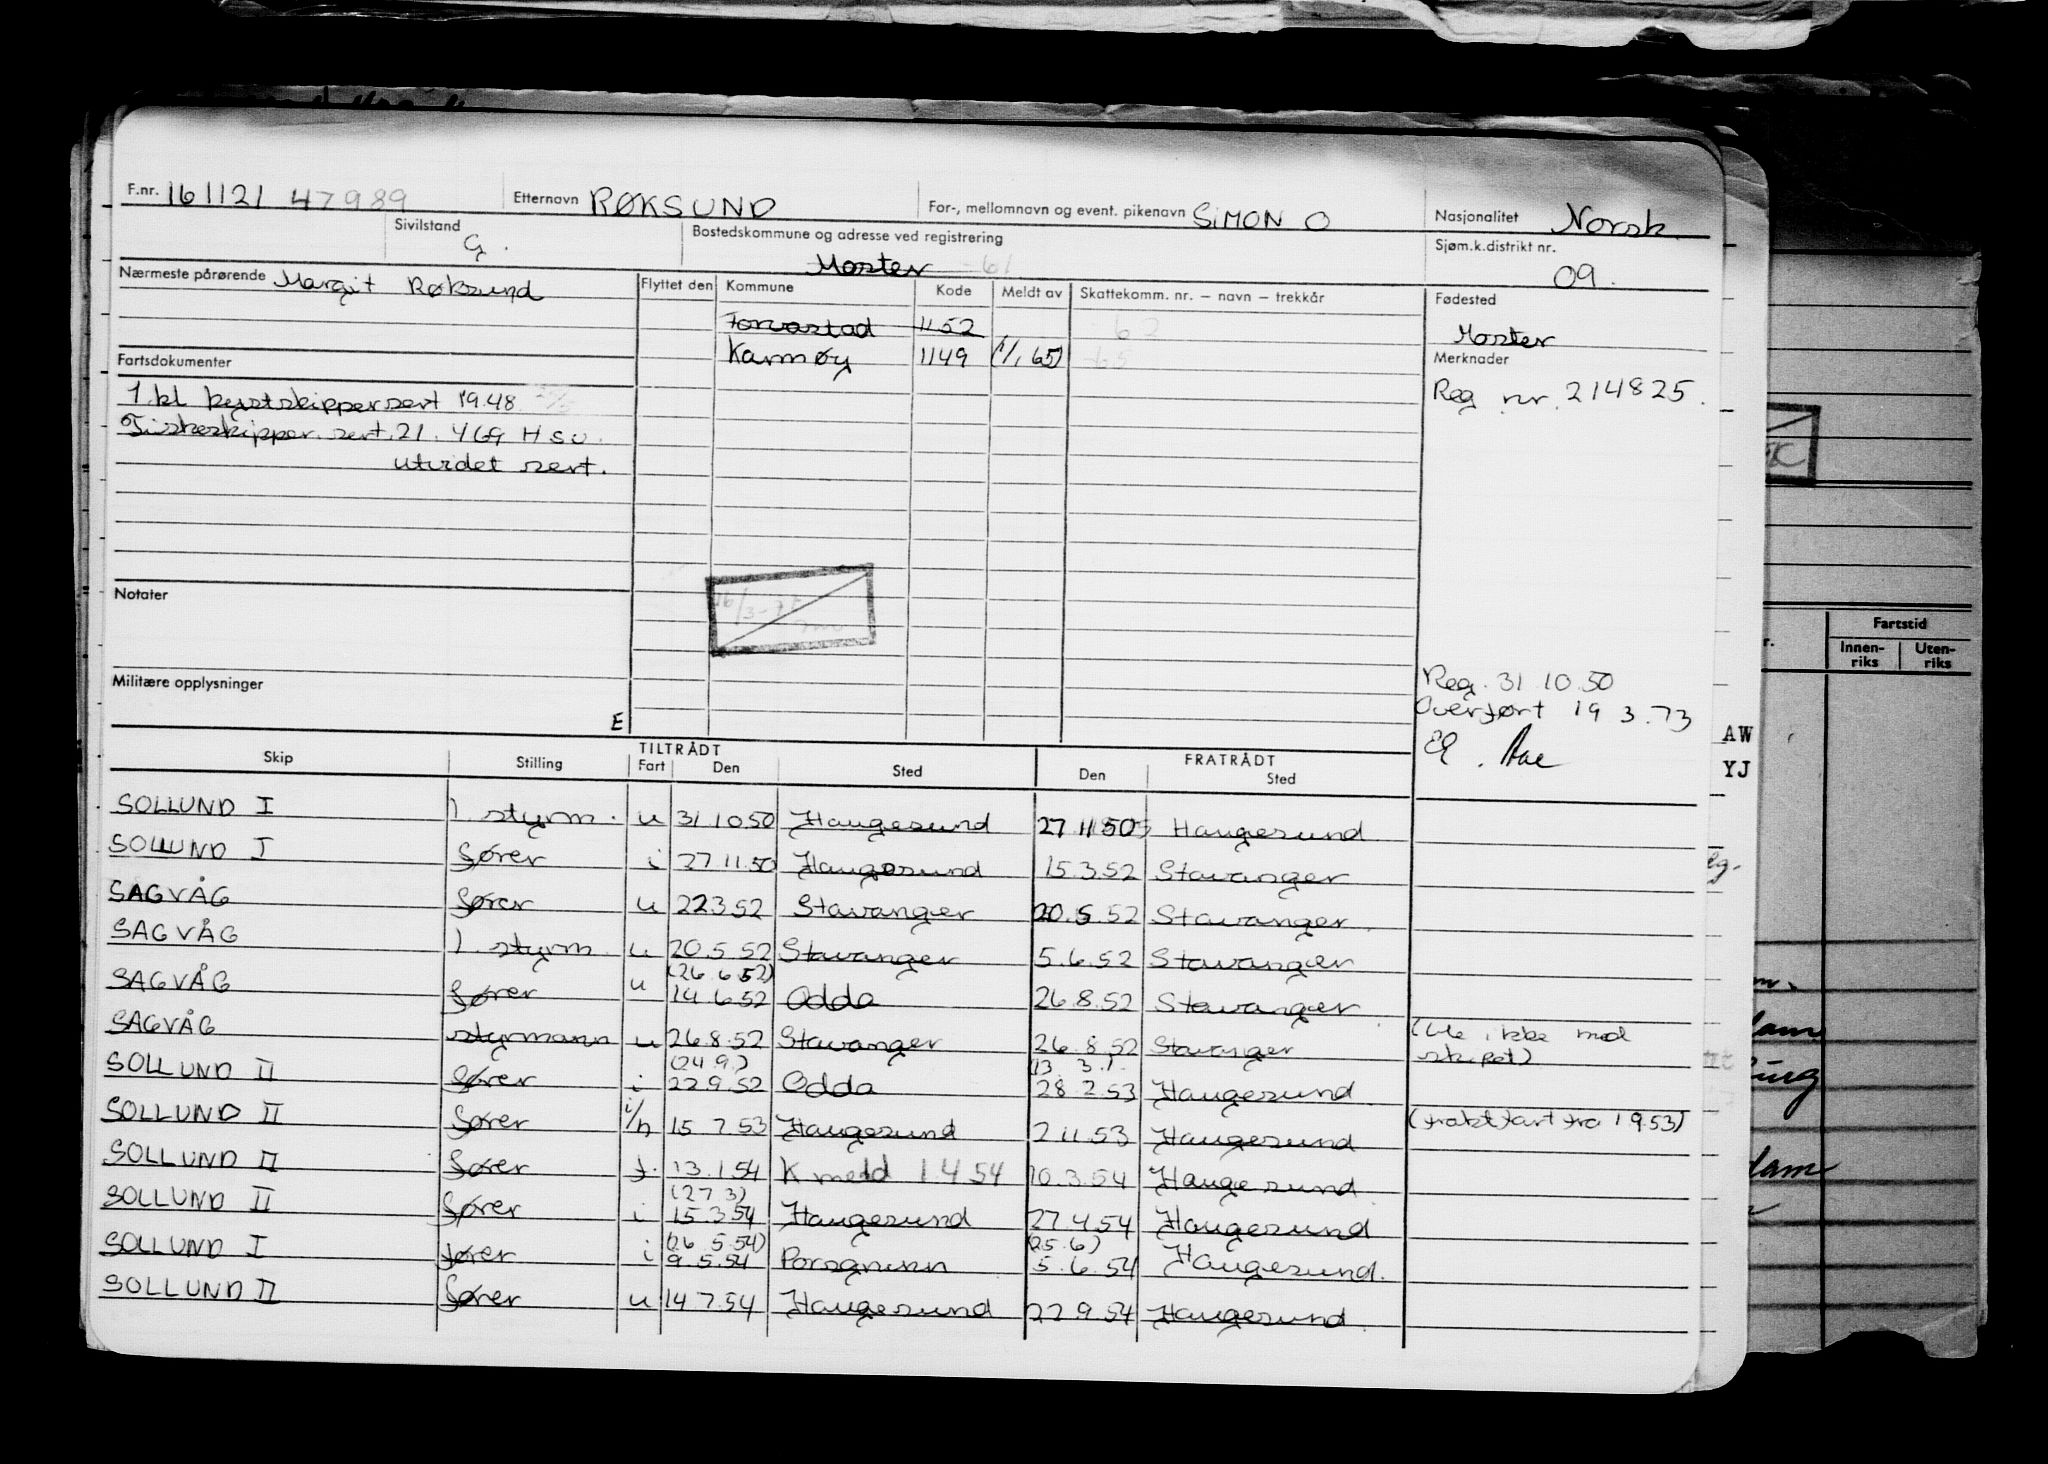 F.nr. 161121 47989 Etternavn RØKSUND For-, mellomnavn og event. pikenavn SIMON O Nasjonalitet Norsk.
Sivilstand G. Bostedskommune og adresse ved registrering Moster - 61 Sjøm.k.distrikt nr. 09.
Nærmeste pårørende Margit Røksund Flyttet den Kommune Kode Meldt av Skattekomm. nr. – navn – trekkår Fødested
Torvastad 1152 62 Moster
Karmøy 1149 (1/1 65) 65
Fartsdokumenter Merknader
1 kl kystskippersert 1948 Reg nr. 214825.
Fiskeskipper. sert. 21. 469 H su.
utvidet sert.
Notater
16/3-
Militære opplysninger E
Reg. 31 10.50
Overført 19 3.73
Fartstid
Innen-riks Uten-riks
AW
YJ
TILTRÅDT FRATRÅDT
Skip Stilling Fart Den Sted Den Sted
SOLLUND I 1 styrm. u 31.10.50 Haugesund 27.11.50 Haugesund.
SOLLUND I fører i 27.11.50 Haugesund 15.3.52 Stavanger
SAGVÅG fører u 22352 Stavanger 20.5.52 Stavanger.
SAGVÅG 1 styrm. u 20.5.52 Stavanger 5.6.52 Stavanger
SAGVÅG fører u (26.6.52) 14.6.52 Odda 26.8.52 Stavanger.
SAGVÅG styrmann u 26.8.52 Stavanger 26.8.52 Stavanger (Ble ikke med skipet)
SOLLUND II fører i (24.9.) 22.9.52 Odda (13.3.) 28.2.53 Haugesund
SOLLUND II fører i/n 15.7.53 Haugesund 2.11.53 Haugesund (fraktfart fra 1 9.53)
SOLLUND II fører f. 13.1.54 K meld 1.4 54 10.3.54 Haugesund
SOLLUND II fører i (27.3) 15.3.54 Haugesund 27.4.54 Haugesund
SOLLUND I fører i (26.5.54) 9.5.54 Porsgrunn (25.6) 5.6.54 Haugesund.
SOLLUND II fører u 14.7.54 Haugesund 22.9.54 Haugesund.